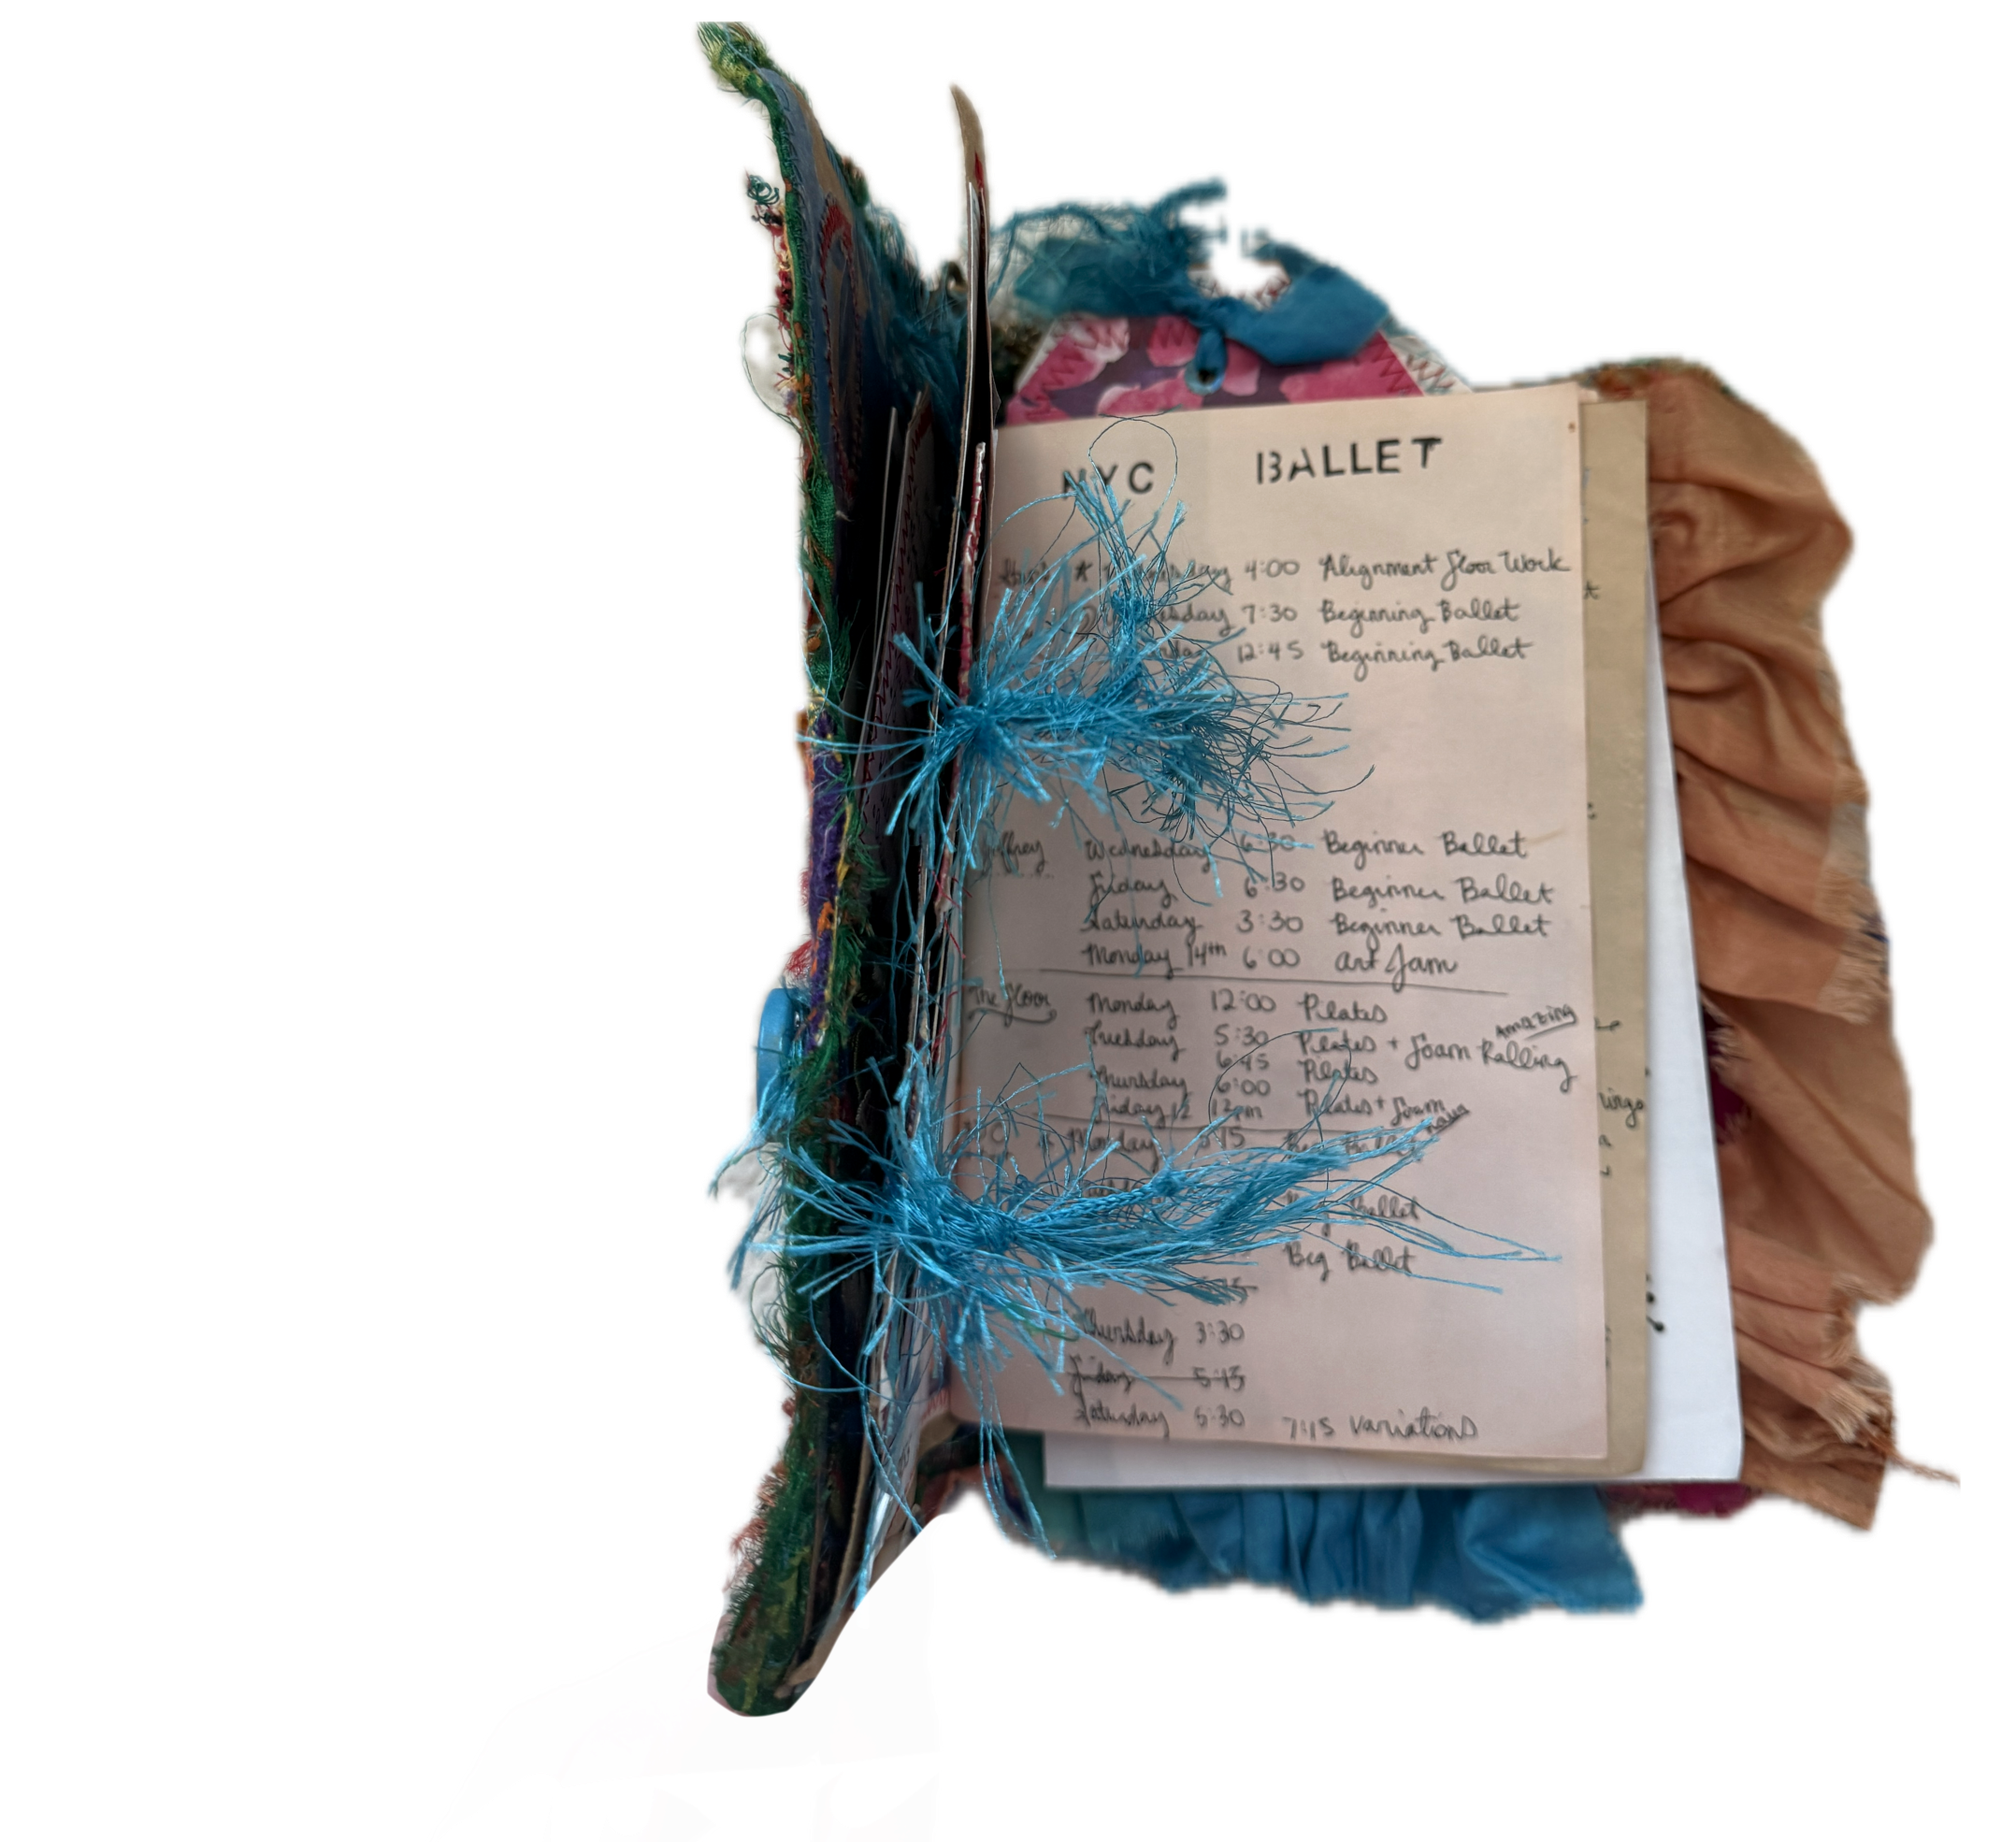 NYC BALLET
4:00 Alignment Floor Work
7:30 Beginning Ballet
12:45 Beginning Ballet
Joffrey Wednesday 6:30 Beginner Ballet
Friday 6:30 Beginner Ballet
Saturday 3:30 Beginner Ballet
Monday 14th 6:00 Art Jam
The Floor Monday 12:00 Pilates
Amazing
Tuesday 5:30 Pilates + Foam Rolling
6:45 Pilates
Thursday 6:00
Friday 12 12pm Pilates + Foam
Monday
Ballet
Beg Ballet
Thursday 3:30
Friday 5:45
Saturday 5:30 7:15 Variations